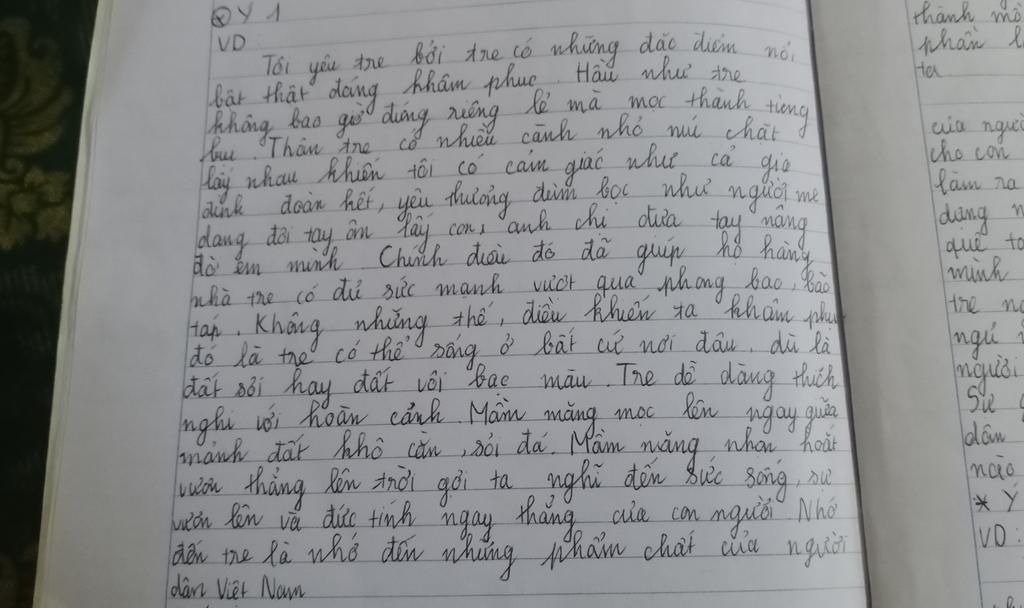 Ý 1
VD
Tôi yêu tre bởi tre có những đặc điểm nổi
bật thật đáng khâm phục. Hầu như tre
không bao giờ đứng riêng lẻ mà mọc thành từng
bụi. Thân tre có nhiều cành nhỏ níu chặt
lấy nhau khiến tôi có cảm giác như cả gia
đình đoàn kết, yêu thương đùm bọc như người mẹ
dang đôi tay ôm lấy con, anh chị đưa tay nâng
đỡ em mình. Chính điều đó đã giúp họ hàng
nhà tre có đủ sức mạnh vượt qua phong ba, bão
táp. Không những thế, điều khiến ta khâm phục
đó là tre có thể sống ở bất cứ nơi đâu, dù là
đất sỏi hay đất vôi bạc màu. Tre dễ dàng thích
nghi với hoàn cảnh. Mầm măng mọc lên ngay giữa
mảnh đất khô cằn, sỏi đá. Mầm măng nhọn hoắt
vươn thẳng lên trời gợi ta nghĩ đến sức sống, sự
vươn lên và đức tính ngay thẳng của con người. Nhớ
đến tre là nhớ đến những phẩm chất của người
dân Việt Nam
thành
phần
ta
của người
cho con
làm ra
dựng
quê
mình
tre
người
Sự
dân
nào
* Ý
VD: